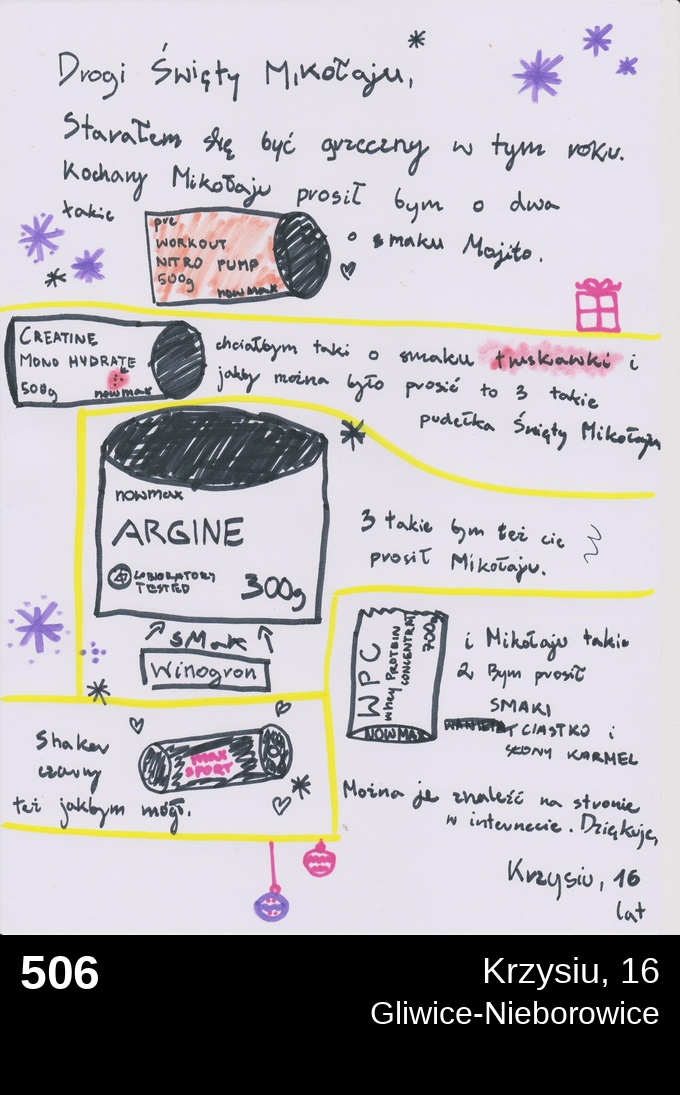 Drogi Święty Mikołaju,
Starałem się być grzeczny w tym roku.
Kochany Mikołaju prosił bym o dwa
takie
pre
WORKOUT
NITRO PUMP
500g
nowmax
o smaku Mojito.
CREATINE
MONO HYDRATE
500g
nowmax
chciałbym taki o smaku truskawki i
jakby można było prosić to 3 takie
pudełka Święty Mikołaju
nowmax
ARGINE
LABORATORY
TESTED
300g
SMAK
Winogron
3 takie bym też cie
prosił Mikołaju.
WPC
Whey PROTEIN
CONCENTRAT
700g
NOWMAX
i Mikołaju takie
2 Bym prosił
SMAKI
CIASTKO i
SŁONY KARMEL
Shaker
czarny
też jakbym mógł.
MAX
SPORT
Można je znaleźć na stronie
w internecie. Dziękuje,
Krzysiu, 16
lat
506
Krzysiu, 16
Gliwice-Nieborowice